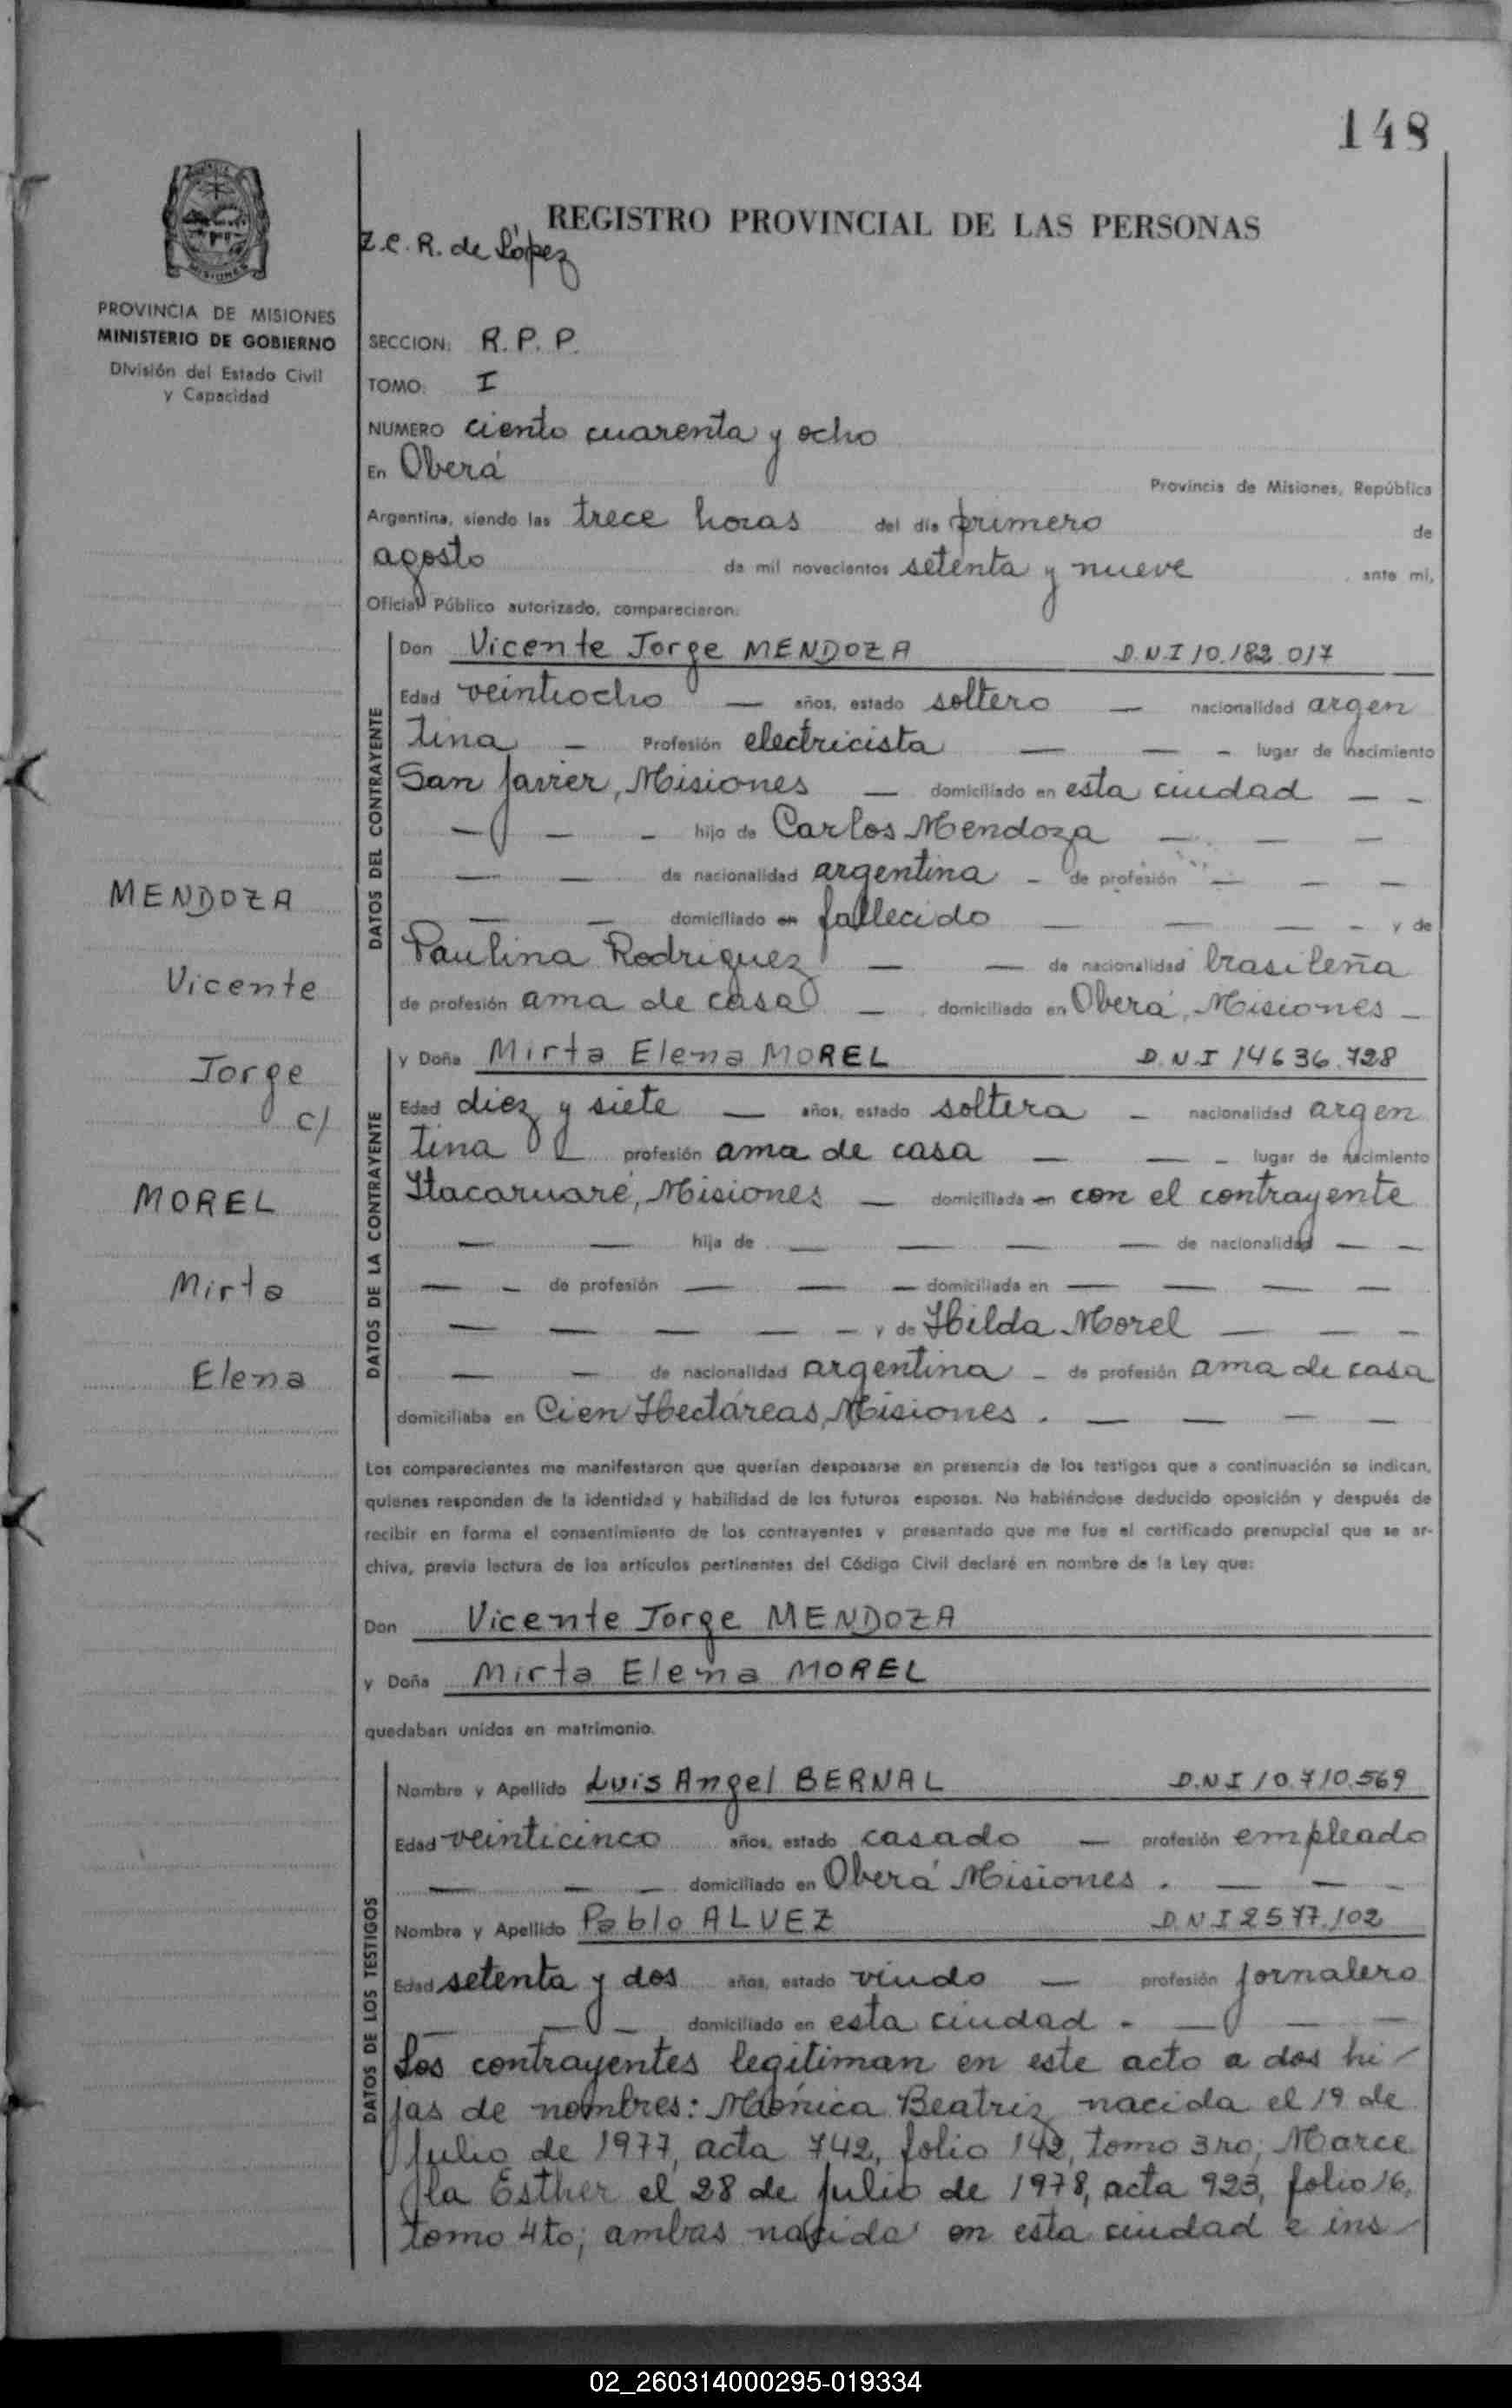 148
REGISTRO PROVINCIAL DE LAS PERSONAS
Z.C.R. de López
PROVINCIA DE MISIONES
MINISTERIO DE GOBIERNO
División del Estado Civil
y Capacidad
SECCION: R. P. P.
TOMO: I
NUMERO ciento cuarenta y ocho
En Oberá Provincia de Misiones, República
Argentina, siendo las trece horas del día primero de
agosto de mil novecientos setenta y nueve ante mi,
Oficial Público autorizado, comparecieron:
DATOS DEL CONTRAYENTE
Don Vicente Jorge MENDOZA D.N.I 10.182.017
Edad veintiocho — años, estado soltero — nacionalidad argen
tina — Profesión electricista — — — lugar de nacimiento
San Javier, Misiones — domiciliado en esta ciudad — —
— — — hijo de Carlos Mendoza — — —
— — de nacionalidad argentina — de profesión — — —
— — domiciliado en fallecido — — — — y de
Paulina Rodriguez — — de nacionalidad brasileña
de profesión ama de casa — domiciliada en Oberá, Misiones —
DATOS DE LA CONTRAYENTE
y Doña Mirta Elena MOREL D.N.I 14636.728
Edad diez y siete — años, estado soltera — nacionalidad argen
tina profesión ama de casa — — — lugar de nacimiento
Itacaruaré, Misiones — domiciliada en con el contrayente
— — hija de — — — — de nacionalidad — —
— — de profesión — — — domiciliada en — — — —
— — — — — y de Hilda Morel — — —
— — de nacionalidad argentina — de profesión ama de casa
domiciliaba en Cien Hectáreas, Misiones . — — — —
Los comparecientes me manifestaron que querían desposarse en presencia de los testigos que a continuación se indican,
quienes responden de la identidad y habilidad de los futuros esposos. No habiéndose deducido oposición y después de
recibir en forma el consentimiento de los contrayentes y presentado que me fue el certificado prenupcial que se ar-
chiva, previa lectura de los artículos pertinentes del Código Civil declaré en nombre de la Ley que:
Don Vicente Jorge MENDOZA
y Doña Mirta Elena MOREL
quedaban unidos en matrimonio.
DATOS DE LOS TESTIGOS
Nombre y Apellido Luis Angel BERNAL D.N.I 10.710.569
Edad veinticinco años, estado casado — profesión empleado
— — — domiciliado en Oberá Misiones . — — —
Nombre y Apellido Pablo ALVEZ D.N.I 2577.102
Edad setenta y dos años, estado viudo — profesión jornalero
— — — domiciliado en esta ciudad . — — —
Los contrayentes legitiman en este acto a dos hi-
jas de nombres: Mónica Beatriz nacida el 19 de
julio de 1977, acta 742, folio 142, tomo 3ro; Marce
la Esther el 28 de julio de 1978, acta 923, folio 16,
tomo 4to; ambas nacida en esta ciudad e ins-
MENDOZA
Vicente
Jorge
c/
MOREL
Mirta
Elena
02_260314000295-019334